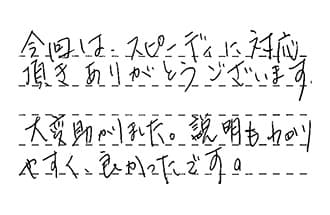 今回は、スピーディに対応
頂きありがとうございます.
大変助かりました。説明もわかり
やすく、良かったです。